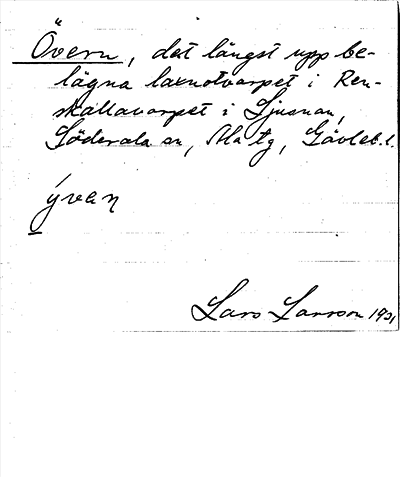 Övern, det längst upp be-
lägna laxnotvarpet i Ren-
skallavarpet i Ljusnan,
Söderala sn, Ala tg, Gävleb. l.
ývan
Lars Larsson 1921